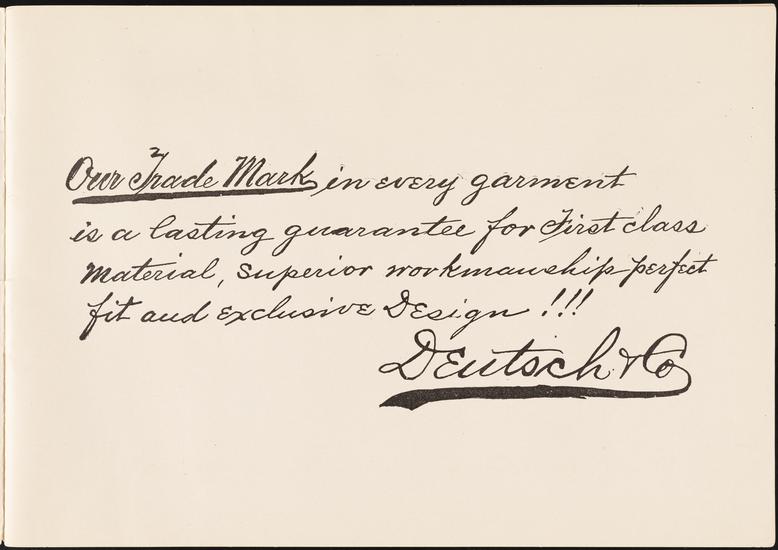 Our Trade Mark in every garment
is a lasting guarantee for First class
Material, superior workmanship perfect
fit and exclusive Design !!!
Deutsch & Co